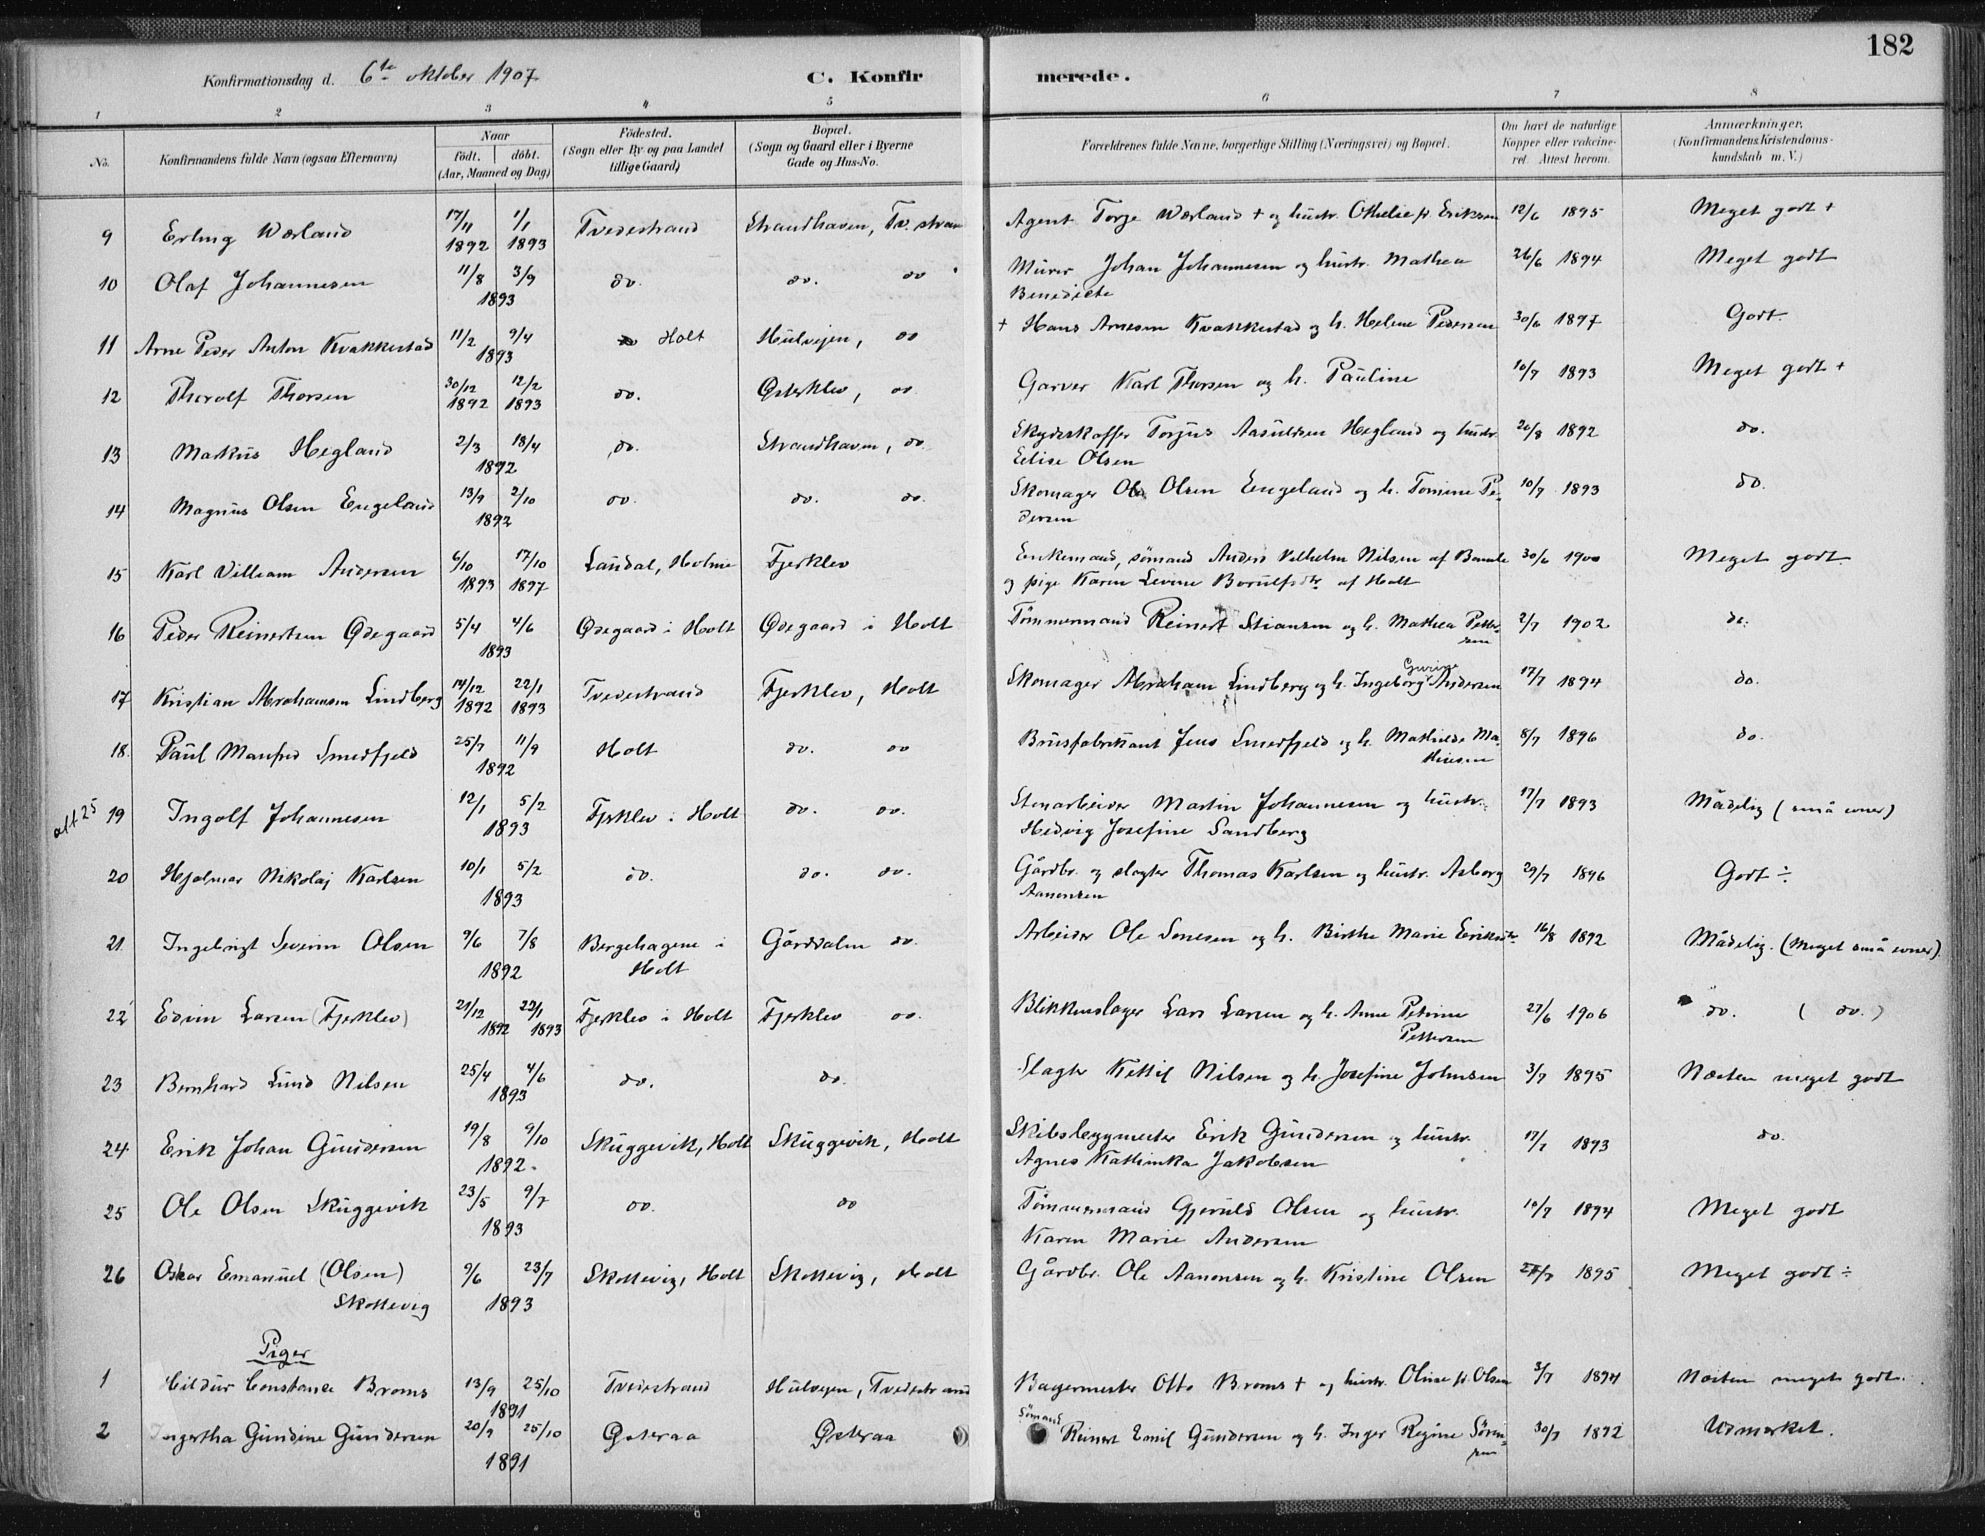 182
Konfirmationsdag d. 6te oktober 1907. C. Konfirmerede.
1 2 3 4 5 6 7 8
No. Konfirmandens fulde Navn (ogsaa Efternavn) Naar födt. döbt. (Aar, Maaned og Dag) Födested. (Sogn eller By og paa Landet tillige Gaard) Bopæl. (Sogn og Gaard eller i Byerne Gade og Hus-No. Forældrenes fulde Navne, borgerlige Stilling (Næringsvei) og Bopæl. Om havt de naturlige Kopper eller vakcineret. Attest herom. Anmærkninger, (Konfirmandens Kristendomskundskab m. V.)
9 Erling Wærland 17/11 1892 1/1 1893 Tvedestrand Strandhaven, Tv.strand Agent Torje Wærland + og hustr. Othelie f. Eriksen 12/6 1895 Meget godt +
10 Olaf Johannesen 11/8 3/9 1893 do. do. do Murer Johan Johannesen og hustr. Mathea
Benedicte 26/6 1894 Meget godt
11 Arne Peder Anton Kvakkestad 11/2 9/4 1893 Holt Hulvejen, do + Hans Arnesen Kvakkestad og h. Helene Pedersen 30/6 1897 Godt.
12 Thorolf Thorsen 30/12 1892 12/2 1893 do. Østerklev, do Garver Karl Thorsen og h. Pauline 10/7 1893 Meget godt +
13 Markus Hegland 2/3 18/4 1892 do. Strandhaven, do. Skydskaffer Torjus Aasulsen Hegland og hustr.
Elise Olsen 20/8 1892 do.
14 Magnus Olsen Engeland 13/9 2/10 1892 do do. do. Skomager Ole Olsen Engeland og h. Tomine Pe-
dersen 10/7 1893 do.
15 Karl Villiam Andersen 6/10 1893 17/10 1897 Landal, Holme Fjerklev Enkemand, sømand Anders Vilhelm Nilsen af Bamle
og pige Karen Levine Borulfsdtr af Holt 30/6 1900 Meget godt.
16 Peder Reinertsen Ødegaard 5/4 4/6 1893 Ødegaard i Holt Ødegaard i Holt Tømmermand Reinert Stiansen og h. Mathea Petter-
sen 2/7 1902 do.
17 Kristian Abrahamsen Lindberg 14/12 1892 22/1 1893 Tvedestrand Fjerklev, Holt Skomager Abraham Lindberg og h. Ingeborg Gurine Andersen 17/7 1894 do.
18. Paul Manfred Smedfjeld 25/7 11/9 1892 Holt do. do Brusfabrikant Jens Smedfjeld og h. Mathilde Ma-
thiesen 8/7 1896 do.
19 Ingolf Johannesen 12/1 5/2 1893 Fjerklev i Holt do. do. Stenarbeider Martin Johannesen og hustr.
Hedvig Josefine Sandberg 17/7 1893 Mådelig (små evner)
20 Hjalmar Nikolaj Karlsen 10/1 5/2 1893 do. do. do. Gårdbr. og slagter Thomas Karlsen og hustr. Asborg
Aanonsen 29/7 1896 Godt ÷
21. Ingebrigt Severin Olsen 9/6 7/8 1892 Bergehagene i
Holt Gårdsalm do. Arbeider Ole Sonesen og h. Birthe Marie Eriksdtr. 16/8 1892 Mådelig. (Meget små evner).
22 Edvin Larsen (Fjerklev) 21/12 1892 22/1 1893 Fjerklev i Holt Fjerklev do. Blikkenslager Lars Larsen og h. Anne Petrine
Pettersen 27/6 1906 do. ( do. )
23 Bernhard Lund Nilsen 25/4 4/6 1893 do. do. Slagter Kettil Nilsen og h. Josefine Johnsen 3/7 1895 Næsten meget godt
24 Erik Johan Gundersen 19/8 9/10 1892. Skuggevik, Holt Skuggevik, Holt Skibsbyggmester Erik Gundersen og hustr.
Agnes Kathinka Jakobsen 17/7 1893 do.
25 Ole Olsen Skuggevik 23/5 9/7 1893 do. do Tømmermand Gjeruld Olsen og hustr.
Karen Marie Andersen 10/7 1894 Meget godt
26 Oskar Emanuel (Olsen)
Skottevig 9/6 23/7 1893 Skottevig, Holt Skottevig, Holt Gårdbr. Ole Aanonsen og h. Kristine Olsen 27/7 1895 Meget godt ÷
Piger
1 Hildur Constance Broms 13/9 25/10 1891 Tvedestrand Hulvejen, Tvedestrand Bagermester Otto Broms + og hustr. Oline f. Olsen 3/7 1894 Næsten meget godt.
2 Ingertha Gundine Gundersen 20/9 25/10 1891 Østeraa Østeraa Sømand Reinert Emil Gundersen og h. Inger Regine Sören-
sen 30/7 1892 Udmærket.